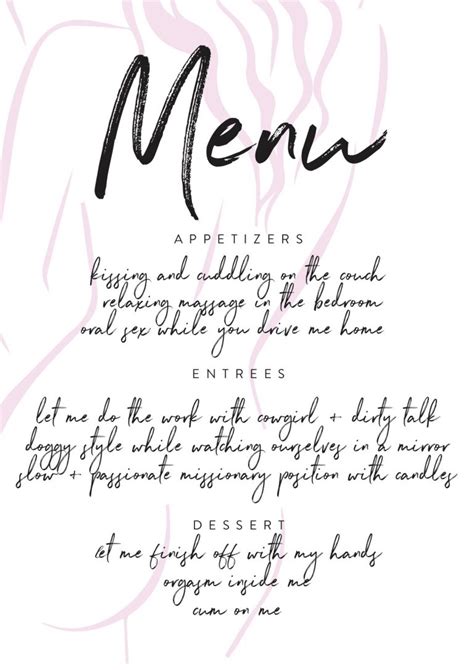 Menu
APPETIZERS
kissing and cuddling on the couch
relaxing massage in the bedroom
oral sex while you drive me home
ENTREES
let me do the work with cowgirl + dirty talk
doggy style while watching ourselves in a mirror
slow + passionate missionary position with candles
DESSERT
let me finish off with my hands
orgasm inside me
cum on me